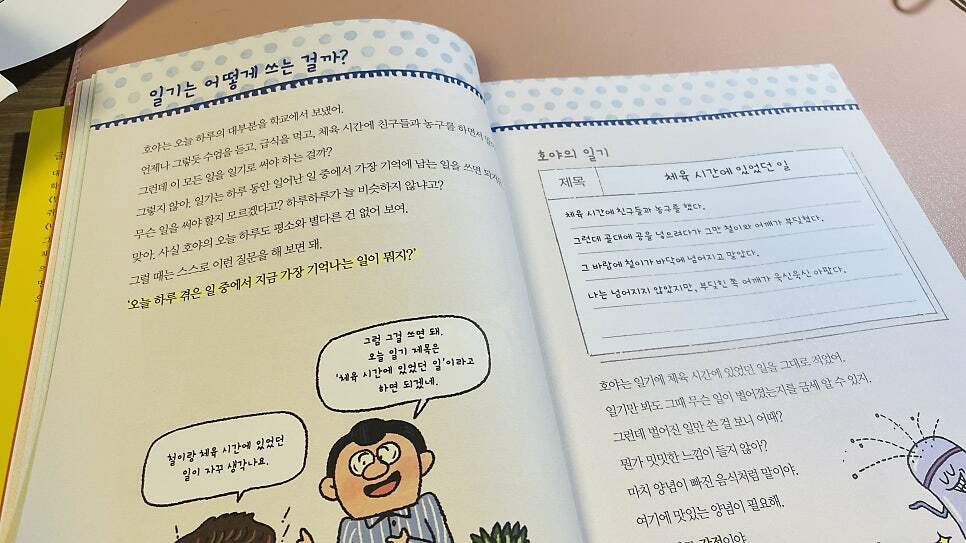 일기는 어떻게 쓰는 걸까?
호야는 오늘 하루의 대부분을 학교에서 보냈어.
언제나 그렇듯 수업을 듣고, 급식을 먹고, 체육 시간에 친구들과 농구를 하면서
그런데 이 모든 일을 일기로 써야 하는 걸까?
그렇지 않아. 일기는 하루 동안 일어난 일 중에서 가장 기억에 남는 일을 쓰면
무슨 일을 써야 할지 모르겠다고? 하루하루가 늘 비슷하지 않냐고?
맞아. 사실 호야의 오늘 하루도 평소와 별다른 건 없어 보여.
그럴 때는 스스로 이런 질문을 해 보면 돼.
‘오늘 하루 겪은 일 중에서 지금 가장 기억나는 일이 뭐지?’
그럼 그걸 쓰면 돼.
오늘 일기 제목은
‘체육 시간에 있었던 일’이라고
하면 되겠네.
철이랑 체육 시간에 있었던
일이 자꾸 생각나요.
호야의 일기
제목 체육 시간에 있었던 일
체육 시간에 친구들과 농구를 했다.
그런데 골대에 공을 넣으려다가 그만 철이와 어깨가 부딪혔다.
그 바람에 철이가 바닥에 넘어지고 말았다.
나는 넘어지지 않았지만, 부딪힌 쪽 어깨가 욱신욱신 아팠다.
호야는 일기에 체육 시간에 있었던 일을 그대로 적었어.
일기만 봐도 그때 무슨 일이 벌어졌는지를 금세 알 수 있지.
그런데 벌어진 일만 쓴 걸 보니 어때?
뭔가 밋밋한 느낌이 들지 않아?
마치 양념이 빠진 음식처럼 말이야.
여기에 맛있는 양념이 필요해.